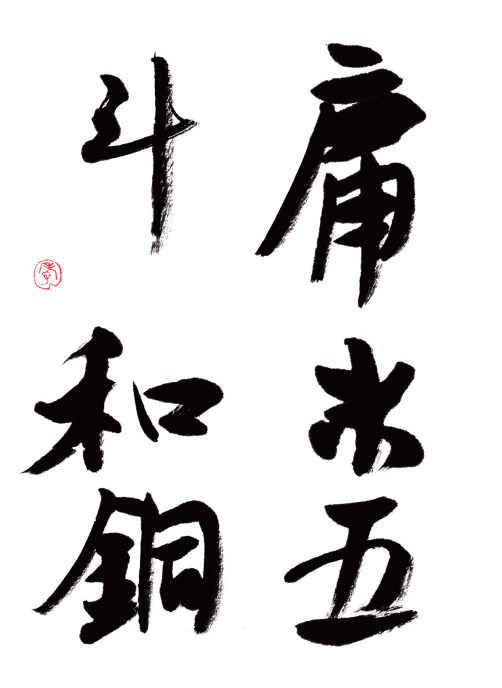 庸米五
斗和銅